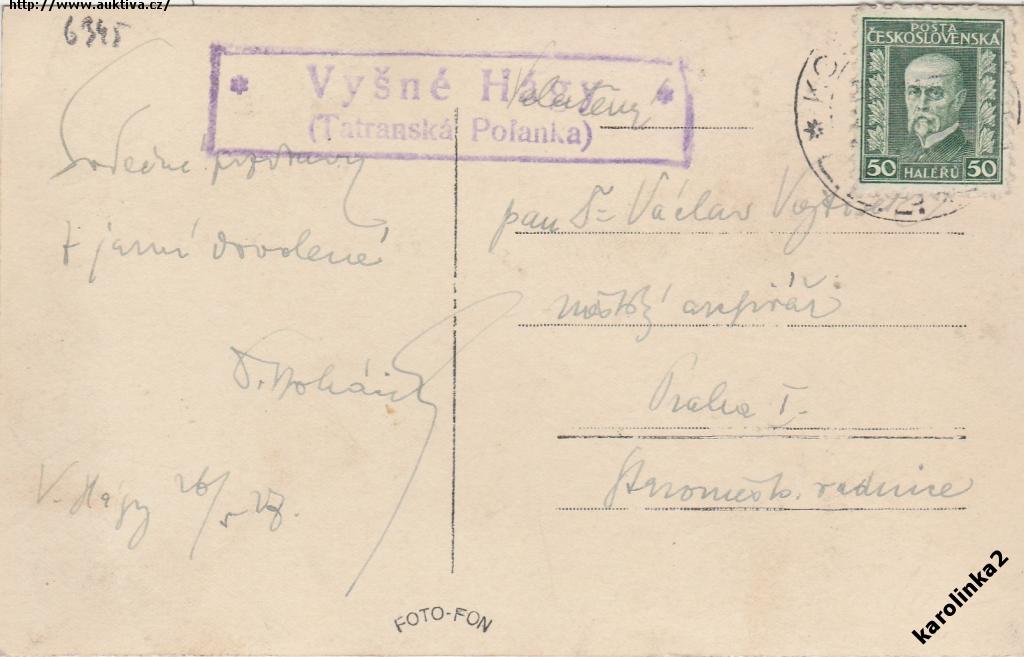 http://www.auktiva.cz/
6345
* Vyšné Hágy *
(Tatranská Polanka)
POŠTA
ČESKOSLOVENSKÁ
50 HALÉŘŮ 50
Srdečné pozdravy
z jarní dovolené
V. Hágy 26/5 28.
Velectěný
pan Dr Václav
městský archivář
Praha I.
Staroměstk. radnice
FOTO-FON
karolinka2